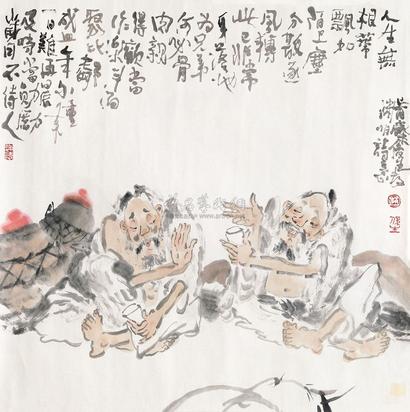 人生無
根蒂
飄如
陌上塵
分散逐
風轉
此已非常
身落地
為兄弟
何必骨
肉親
得歡當
作樂斗酒
聚比鄰
盛年不重來
一日難再晨
及時當勉勵
歲月不待人
陶淵明詩意